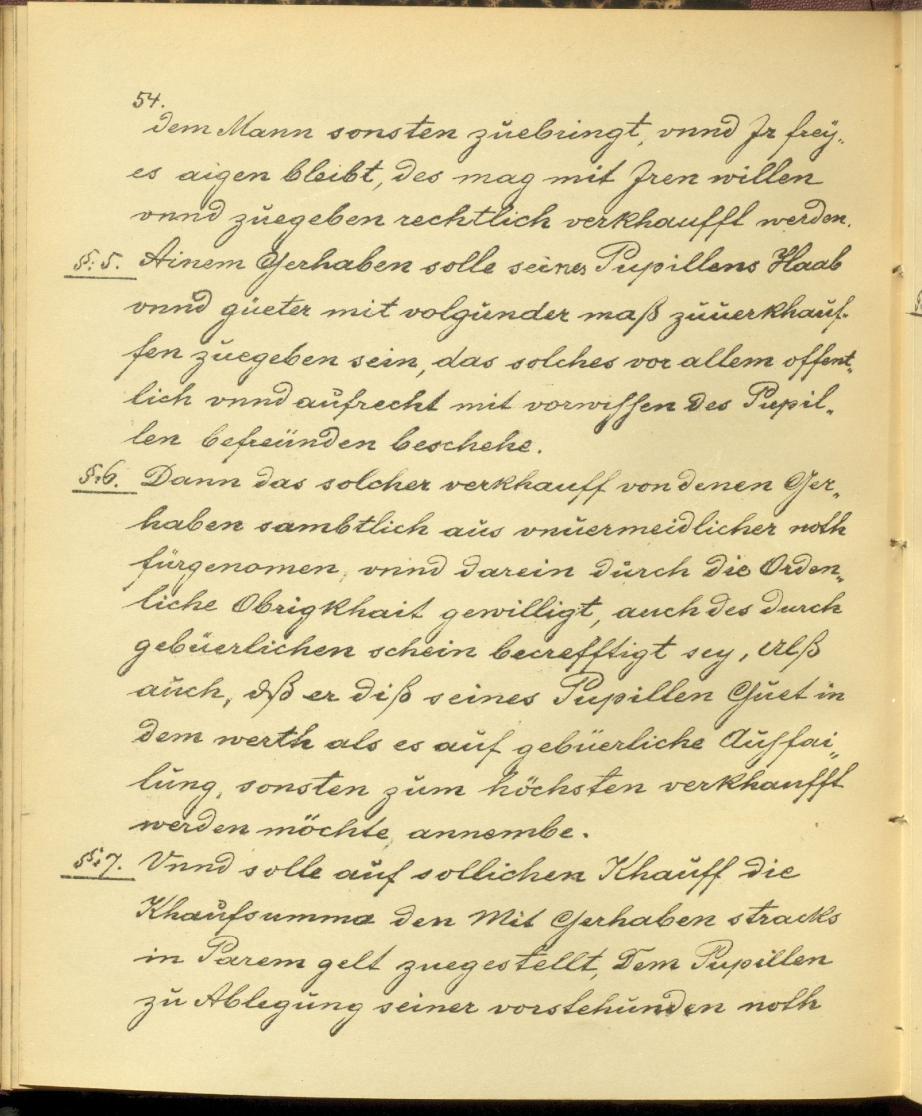 54.
dem Mann sonsten zŭebringt, vnnd Jr frey„
es aigen bleibt, des mag mit Jren willen
vnnd zŭegeben rechtlich verkhaufft werden.
§: 5. Ainem Gerhaben solle seines Pupillens Haab
vnnd güeter mit volgŭnder maß zŭŭerkhaŭf„
fen zuegeben sein, das solches vor allem offent„
lich vnnd aufrecht mit vorwissen des Pupil„
len befreünden beschehe.
§:6. Dann das solcher verkhauff von denen Ger„
haben sambtlich aŭs vnŭermeidlicher noth
fürgenomen, vnnd darein dŭrch die Orden„
liche Obrigkhait gewilligt, auch des durch
gebüerlichen schein becrefftigt sey, Alß
aŭch, dß er diß seines Pupillen Gŭet in
dem werth als es aŭf gebüerliche Aŭsfai„
lŭng, sonsten zŭm höchsten verkhaufft
werden möchte annembe.
§:7. Vnnd solle aŭf sollichen Khaŭff die
Khaŭfsumma den Mit Gerhaben stracks
in Parem gelt zuegestellt, Dem Pupillen
zŭ Ablegŭng seiner vorstehŭnden noth